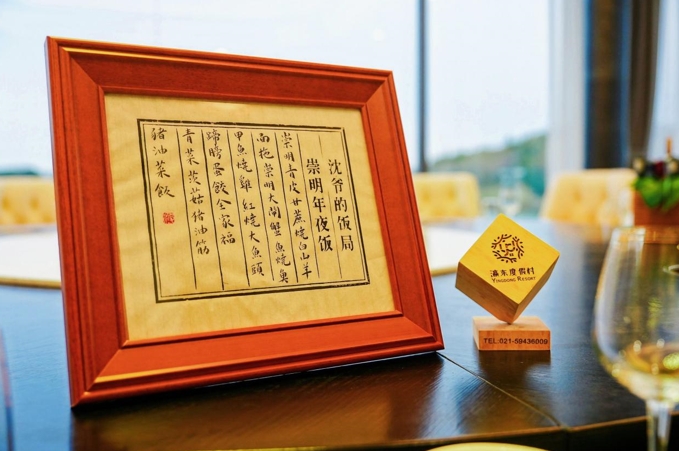 沈爷的饭局
崇明年夜饭
崇明青皮甘蔗烧白山羊
面拖崇明大闸蟹 鱼烧
甲鱼烧鸡 红烧大鱼頭
蹄膀蛋餃全家福
青菜茨菇猪油筋
豬油菜飯
瀛东度假村
YINGDONG RESORT
TEL:021-59436009